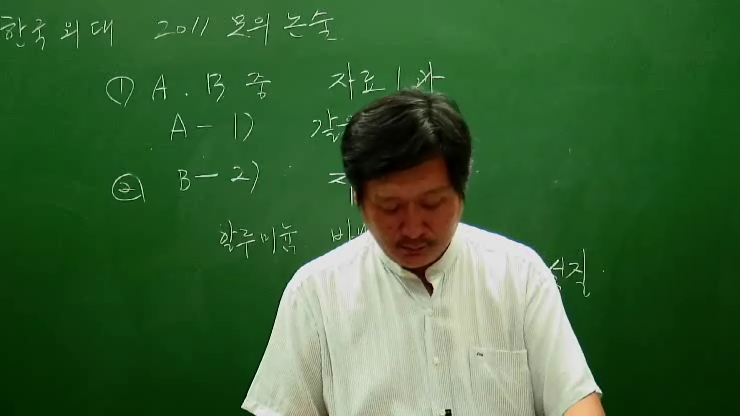 한국외대 2011 모의논술
① A. B 중 자료 1과
A - 1)
② B - 2)
알루미늄
성질